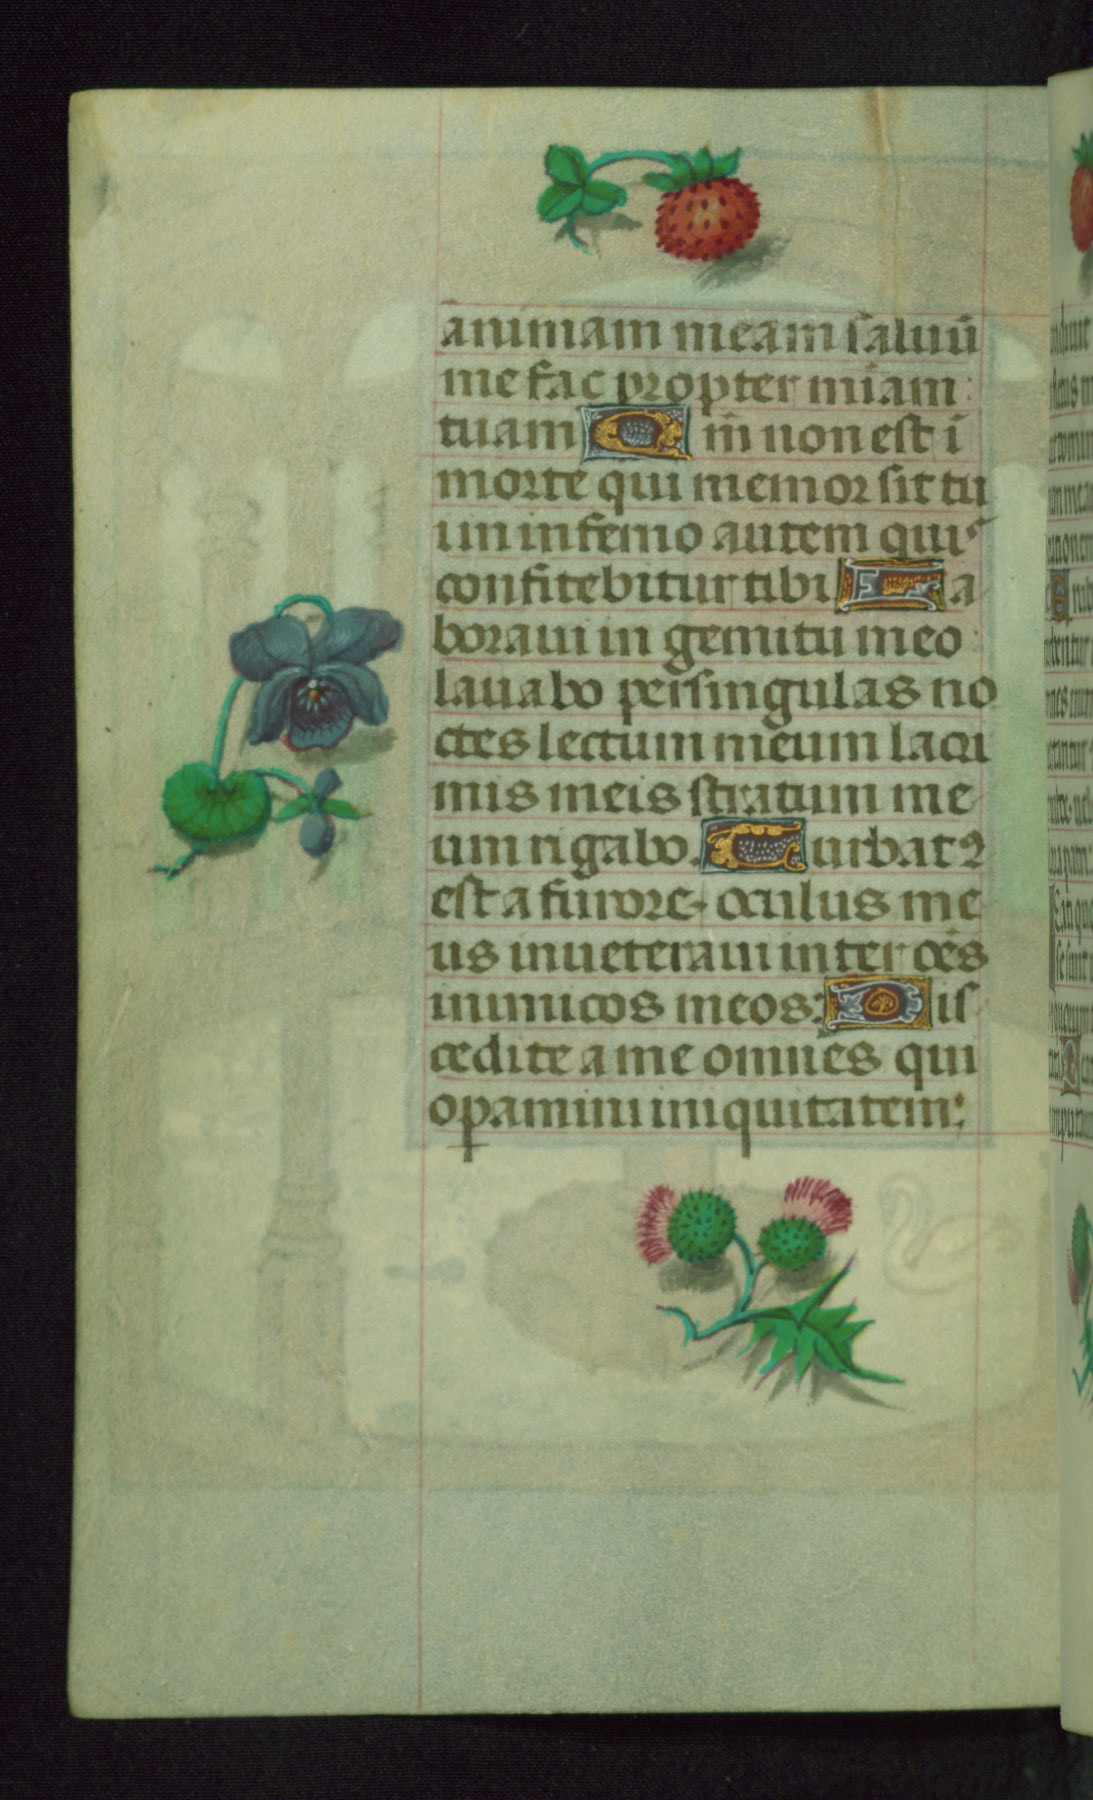 animam meam saluū
me fac propter miam
tuam Qm̄ non est ī
morte qui memor sit tu
i in inferno autem quis
confitebitur tibi La
boraui in gemitu meo
lauabo per singulas no
ctes lectum meum lacri
mis meis stratum me
um rigabo. Turbatꝰ
est a furore oculus me
us inueteraui inter oēs
inimicos meos: Dis
cedite a me omnes qui
opamini iniquitatem: